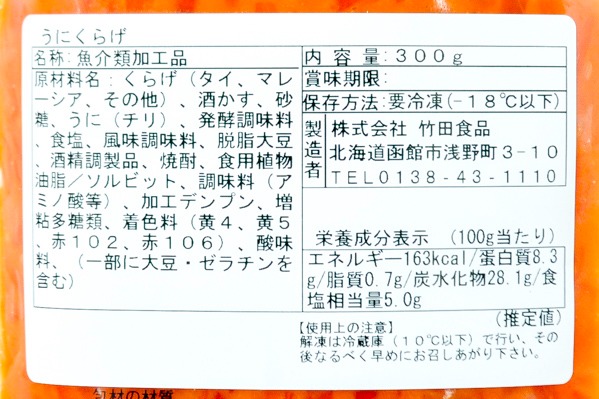 うにくらげ
名称:魚介類加工品
原材料名:くらげ(タイ、マレ
ーシア、その他)、酒かす、砂
糖、うに(チリ)、発酵調味料
、食塩、風味調味料、脱脂大豆
、酒精調製品、焼酎、食用植物
油脂/ソルビット、調味料(ア
ミノ酸等)、加工デンプン、増
粘多糖類、着色料(黄4、黄5
、赤102、赤106)、酸味
料、(一部に大豆・ゼラチンを
含む)
内容量:300g
賞味期限:
保存方法:要冷凍(-18℃以下)
製造者
株式会社 竹田食品
北海道函館市浅野町3-10
TEL0138-43-1110
栄養成分表示 (100g当たり)
エネルギー163kcal/蛋白質8.3
g/脂質0.7g/炭水化物28.1g/食
塩相当量5.0g
(推定値)
【使用上の注意】
解凍は冷蔵庫(10℃以下)で行い、その
後なるべく早めにお召しあがり下さい。
包材の材質